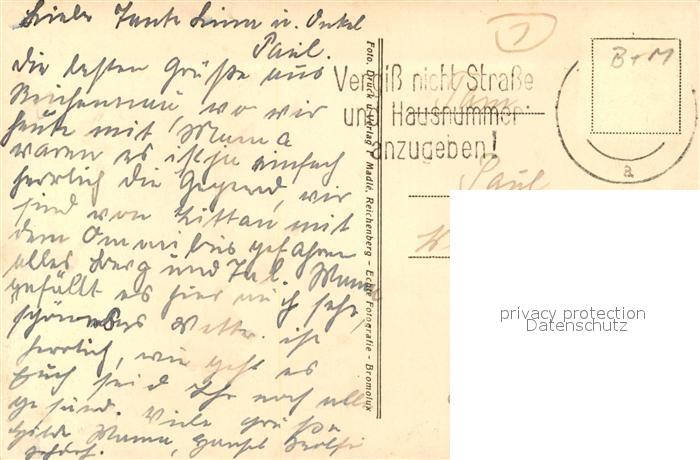 Liebe Tante Linna u. Onkel
Paul.
Die besten Grüße aus
Reichenau, wo wir
heute mit Mama
waren es ist ja einfach
herrlich die Gegend, wir
sind von Zittau mit
dem Omnibus gefahren
alles Berg und Tal. Mama
gefällt es hier auch sehr,
schönes Wetter ist
herrlich, wie geht es
Euch seid Ihr noch alle
gesund. Viele Grüße
Hilde Mama, Hansel
Foto, Druck u. Verlag F. Madle, Reichenberg - Echte Fotografie - Bromolux
1
Vergiß nicht Straße
und Hausnummer
anzugeben!
B+M
a
Fam
Paul
privacy protection
Datenschutz